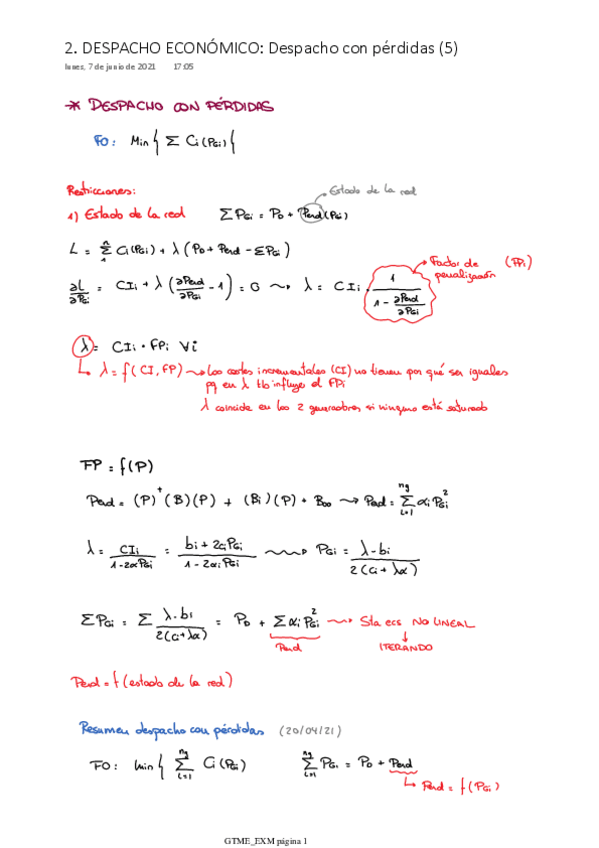 2. DESPACHO ECONÓMICO: Despacho con pérdidas (5)
lunes, 7 de junio de 2021 17:05
* DESPACHO CON PÉRDIDAS
FO: Min { Σ Ci(PGi) {
Restricciones:
Estado de la red
1) Estado de la red ΣPGi = PD + Perd(PGi)
L = Σ Ci(PGi) + λ (PD + Perd - ΣPGi)
Factor de penalización (FPi)
∂L/∂PGi = CIi + λ (∂Perd/∂PGi - 1) = 0 ⇝ λ = CIi · 1/(1 - ∂Perd/∂PGi)
λ = CIi · FPi ∀i
↳ λ = f(CI, FP) → Los costes incrementales (CI) no tienen por qué ser iguales
pq en λ tb influye el FPi
λ coincide en los 2 generadores si ninguno está saturado
FP = f(P)
Perd = (P)^t (B)(P) + (Bi)(P) + Boo → Perd = Σ_{i=1}^{ng} αi PGi²
λ = CIi/(1-2αPGi) = (bi + 2ciPGi)/(1 - 2αiPGi) ⇝ PGi = (λ - bi)/(2(ci + λα))
ΣPGi = Σ (λ - bi)/(2(ci + λα)) = PD + Σ αi PGi² → Sta ecs NO LINEAL
Perd ↓ ITERANDO
Perd = f (estado de la red)
Resumen despacho con pérdidas (20/04/21)
FO: min { Σ_{i=1}^{ng} Ci (PGi) Σ_{i=1}^{ng} PGi = PD + Perd
↳ Perd = f(PGi)
GTME_EXM página 1